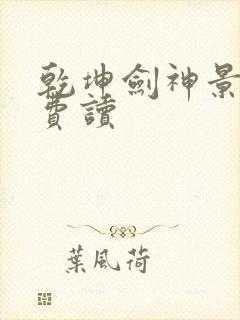 乾坤劍神景
費讀
葉風荷